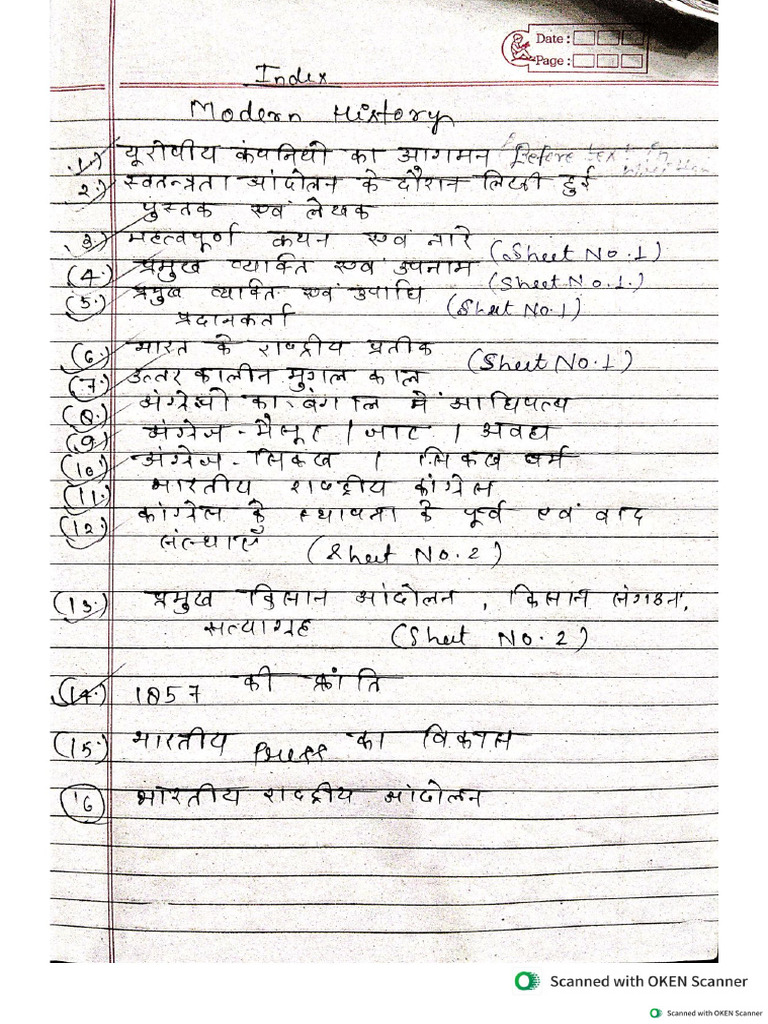 Date :
Page :
Index
Modern History
1.) यूरोपीय कंपनियों का आगमन
2.) स्वतन्त्रता आंदोलन के दौरान लिखी हुई
पुस्तक एवं लेखक
3.) महत्वपूर्ण कथन एवं नारे (Sheet No. 1)
(4.) प्रमुख व्यक्ति एवं उपनाम (Sheet No. 1.)
(5.) प्रमुख व्यक्ति एवं उपाधि (Sheet No. 1)
प्रदानकर्ता
(6.) भारत के राष्ट्रीय प्रतीक (Sheet No. 1)
(7.) उत्तर कालीन मुगल काल
(8.) अंग्रेजो का बंगाल में आधिपत्य
(9.) अंग्रेज - मैसूर / जाट / अवध
(10.) अंग्रेज - सिक्ख / सिक्ख धर्म
(11.) भारतीय राष्ट्रीय कांग्रेस
(12.) कांग्रेस के स्थापना के पूर्व एवं वाद
संस्थाएँ (Sheet No. 2)
(13.) प्रमुख किसान आंदोलन , किसान संगठन,
सत्याग्रह (Sheet No. 2)
(14.) 1857 की क्रांति
(15.) भारतीय press का विकास
16 भारतीय राष्ट्रीय आंदोलन
Scanned with OKEN Scanner
Scanned with OKEN Scanner